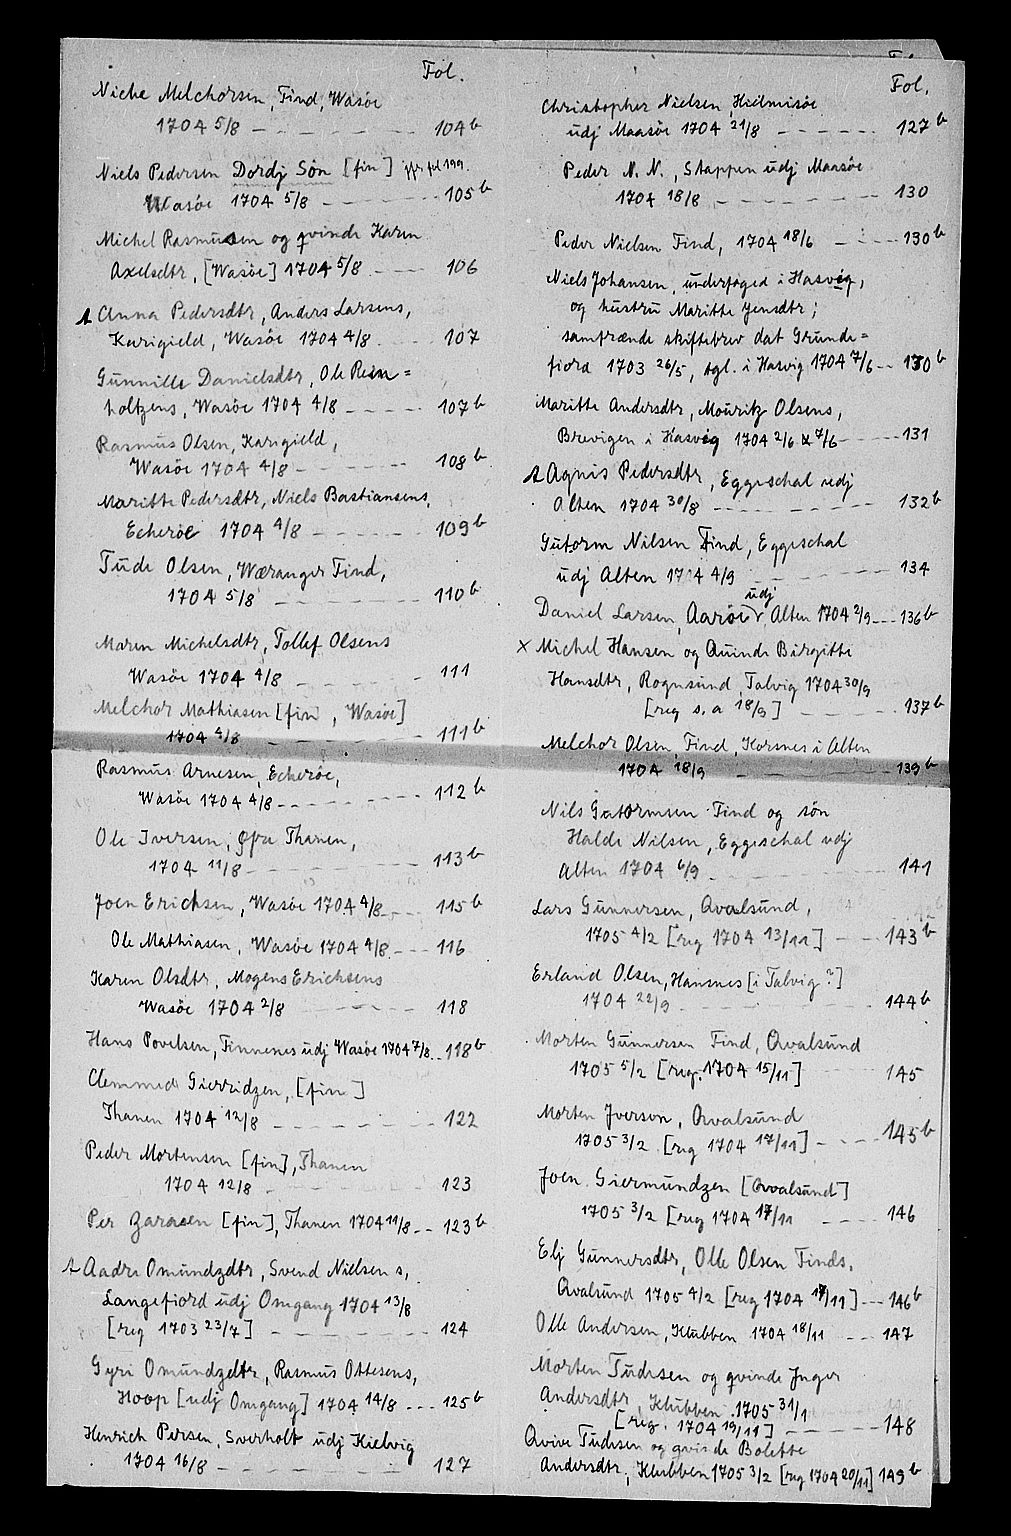 Fol.
Niche Melchorsen, Find, Wasöe
1704 5/8 - - - - - - - 104b
Niels Pedersen Dordj Søn [fin] jfr fol 199.
Wasöe 1704 5/8 - - - - - - 105b
Michel Rasmussen og qvinde Karen
Axelsdtr, [Wasöe] 1704 5/8 - - - - 106
Anna Pedersdtr, Anders Larsens,
Karigield, Wasöe 1704 4/8 - - - - 107
Gunnille Danielsdtr, Ole Rein=
holtzens, Wasöe 1704 4/8 - - - - - 107b
Rasmus Olsen, Karigield,
Wasöe 1704 4/8 - - - - - - - 108b
Maritte Pedersdtr, Niels Bastiansens,
Echeröe 1704 4/8 - - - - - - 109b
Tude Olsen, Wæranger Find,
1704 5/8 - - - - - - - 110b
Maren Michelsdtr, Tollef Olsens
Wasöe 1704 4/8 - - - - - - - 111
Melchor Mathiasen [fin, Wasöe]
1704 4/8 - - - - - - - - 111b
Rasmus Arnesen, Echeröe,
Wasöe 1704 4/8 - - - - - - - 112b
Ole Iversen, øfre Thanen,
1704 11/8 - - - - - - - 113b
Joen Erichsen, Wasöe 1704 4/8 - - - 115b
Ole Mathiasen, Wasöe 1704 4/8 - - - 116
Karen Olsdtr, Mogens Erichsens
Wasöe 1704 2/8 - - - - - 118
Hans Povelsen, Finnenes udj Wasöe 1704 7/8 - - 118b
Clemmed Gierridzen, [fin]
Thanen 1704 12/8 - - - - - - - 122
Peder Mortensen [fin], Thanen
1704 12/8 - - - - - - - 123
Per Zarasen [fin], Thanen 1704 11/8 - - 123b
Aadre Omundzdtr, Svend Nielsens,
Langefiord udj Omgang 1704 13/8
[reg 1703 23/7] - - - - - - - 124
Gyri Omundzdtr, Rasmus Ottesens,
Hoop [udj Omgang] 1704 14/8 - - - 125b
Henrich Persen, Sverholt udj Kielvig
1704 16/8 - - - - - - - - 127
Fol.
Christopher Nielsen, Hielmisöe
udj Maasöe 1704 21/8 - - - - - - 127b
Peder N. N., Stappen udj Maasöe
1704 18/8 - - - - - - - 130
Peder Nielsen Find, 1704 18/6 - - - - 130b
Niels Johansen, underfoged i Hasvig,
og hustru Maritte Jensdtr;
samfrænde skiftebrev dat Grunde=
fiord 1703 26/5, tgl. i Hasvig 1704 7/6 - - 130b
Maritte Andersdtr, Mouritz Olsens,
Brevigen i Hasvig 1704 2/6 & 7/6 - - - - 131
Agnis Pedersdtr, Eggeschal udj
Alten 1704 30/8 - - - - - - - - 132b
Gutorm Nilsen Find, Eggeschal
udj Alten 1704 4/9 - - - - - - - 134
Daniel Larsen, Aaröe udj, Alten 1704 2/9 - - - 136b
× Michel Hansen og Quinde Birgitte
Hansdtr, Rognsund, Talvig 1704 30/9
[reg s.a 18/9] - - - - - - 137b
Melchor Olsen Find, Korsnes i Alten
1704 18/9 - - - - - - - - 139b
Nils Gutormsen Find og søn
Halde Nilsen, Eggeschal udj
Alten 1704 6/9 - - - - - - - - 141
Lars Gunnersen, Qvalsund,
1705 4/2 [reg 1704 13/11] - - - - 143b
Erland Olsen, Hansnes [i Talvig?]
1704 22/9 - - - - - - - - 144b
Morten Gunnersen Find, Qvalsund
1705 5/2 [reg. 1704 15/11] - - - - 145
Morten Iverson, Qvalsund
1705 3/2 [reg 1704 17/11] - - - - 145b
Joen Giermundzen [Qvalsund]
1705 3/2 [reg 1704 17/11 - - - - 146
Elj Gunnersdtr, Olle Olsen Finds,
Qvalsund 1705 4/2 [reg 1704 17/11] - - - 146b
Olle Andersen, Klubben 1704 18/11 - - - 147
Morten Tudesen og qvinde Inger
Andersdtr, Klubben 1705 31/1
[reg. 1704 19/11] - - - - - - 148
Qvive Tudesen og qvinde Bolette
Andersdtr, Klubben 1705 3/2 [reg 1704 20/11] 149b